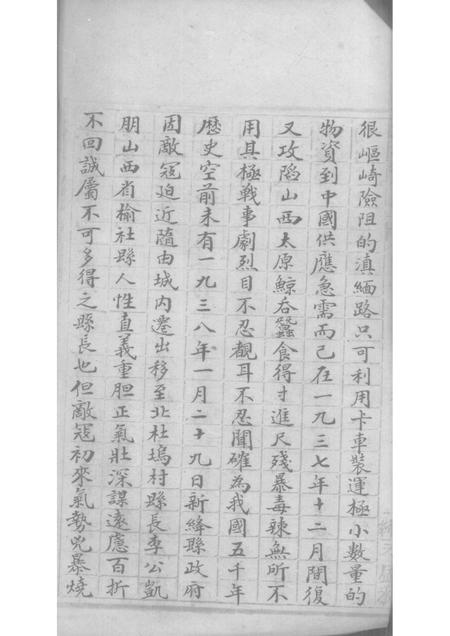 很嶇崎險阻的滇緬路只可利用卡車裝運極小數量的
物資到中國供應急需而已在一九三七年十二月間復
又攻陷山西太原鯨吞蠶食得寸進尺殘暴毒辣無所不
用其極戰事劇烈目不忍觀耳不忍聞確為我國五千年
歷史空前未有一九三八年一月二十九日新絳縣政府
因敵寇迫近隨由城內遷出移至北杜塢村縣長李公凱
朋山西省榆社縣人性直義重胆正氣壯深謀遠慮百折
不回誠屬不可多得之縣長也但敵寇初來氣勢兇暴燒